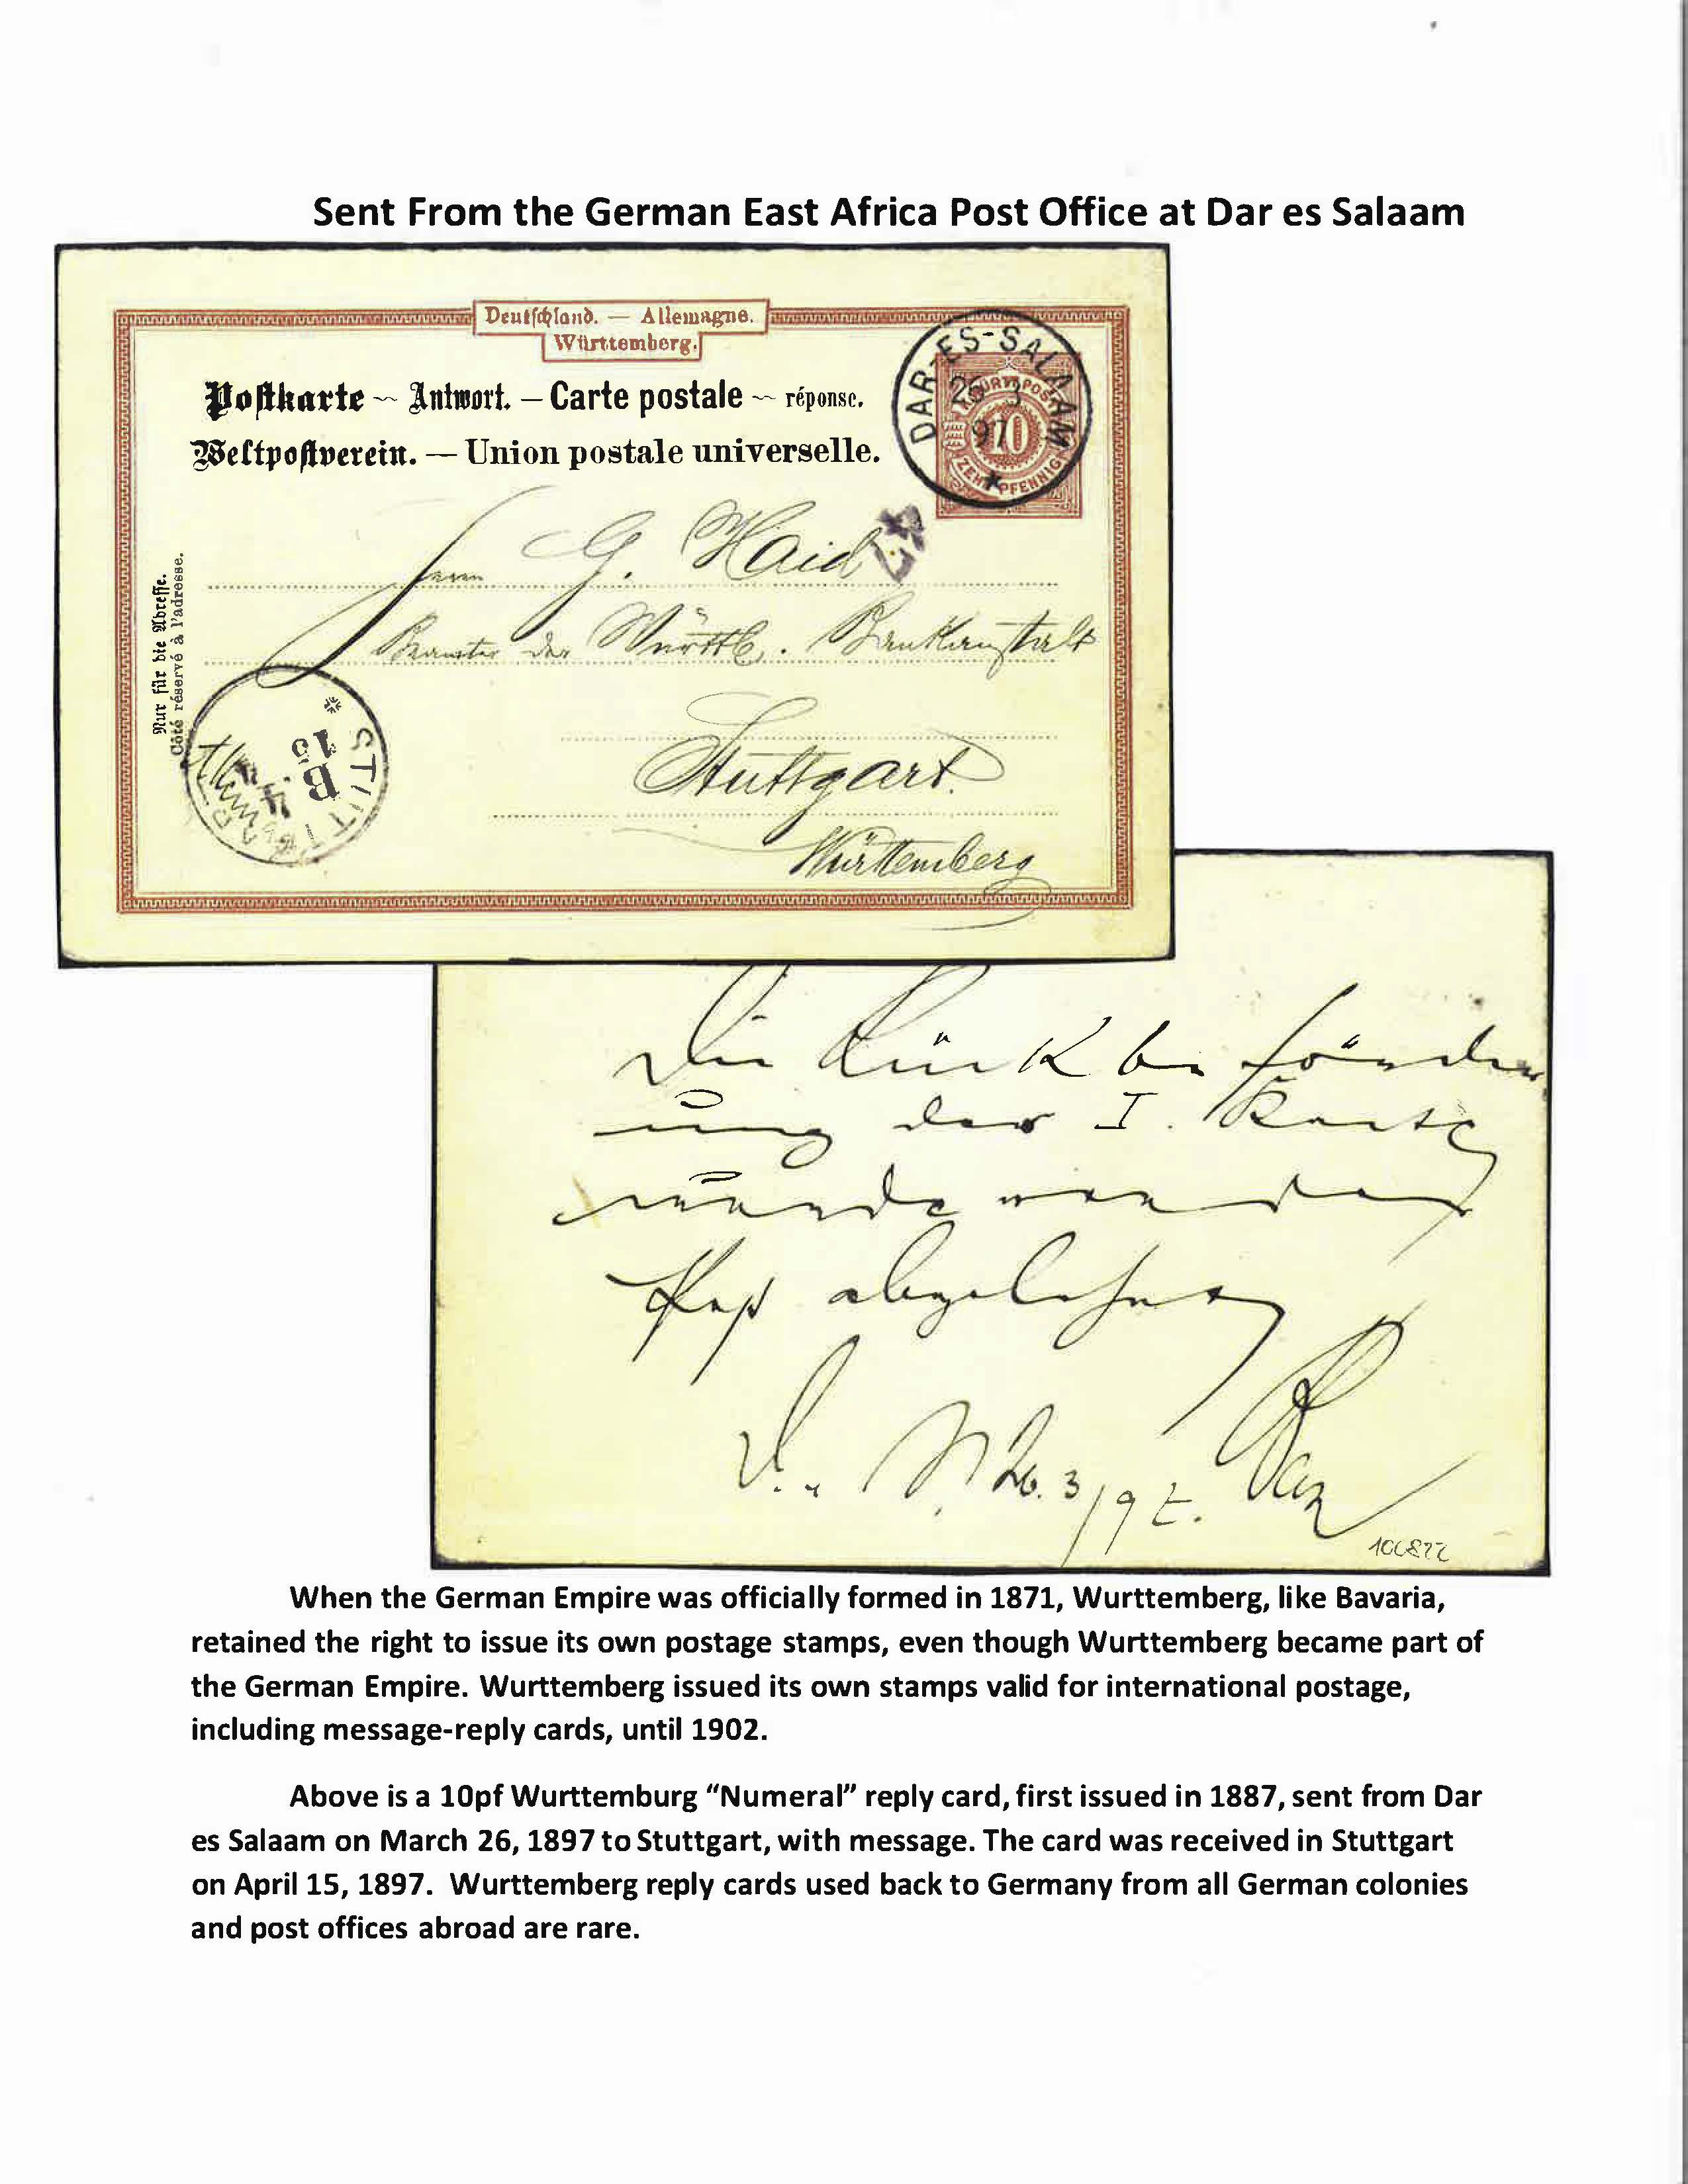 Sent From the German East Africa Post Office at Dar es Salaam
Deutschland. — Allemagne.
Württemberg.
Postkarte — Antwort. — Carte postale — réponse.
Weltpostverein. — Union postale universelle.
DAR-ES-SALAAM
26 3
97
K. WÜRTT. POST
10
ZEHN PFENNIG
Nur für die Adresse.
Côté réservé à l'adresse.
Herrn G. Haid
Beamter der Württb. Bankanstalt
Stuttgart.
Württemberg
STUTTGART
15
B
4
Die Rückbeförder
ung der I. Karte
wurde von der
Post abgelehnt
26. 3/97.
When the German Empire was officially formed in 1871, Wurttemberg, like Bavaria,
retained the right to issue its own postage stamps, even though Wurttemberg became part of
the German Empire. Wurttemberg issued its own stamps valid for international postage,
including message-reply cards, until 1902.
Above is a 10pf Wurttemburg “Numeral” reply card, first issued in 1887, sent from Dar
es Salaam on March 26, 1897 to Stuttgart, with message. The card was received in Stuttgart
on April 15, 1897. Wurttemberg reply cards used back to Germany from all German colonies
and post offices abroad are rare.